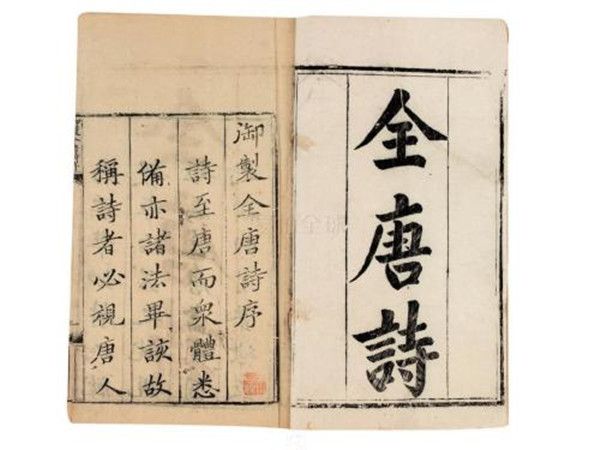 全唐詩
御製全唐詩序
詩至唐而眾體悉
備亦諸法畢該故
稱詩者必視唐人